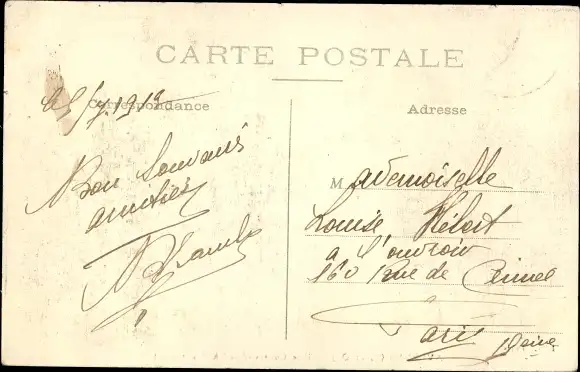 CARTE POSTALE
Correspondance
Adresse
Bon Souvenir
amitiés
Mademoiselle
Louise
a l'ouvroir
160 Rue de
Paris
Seine